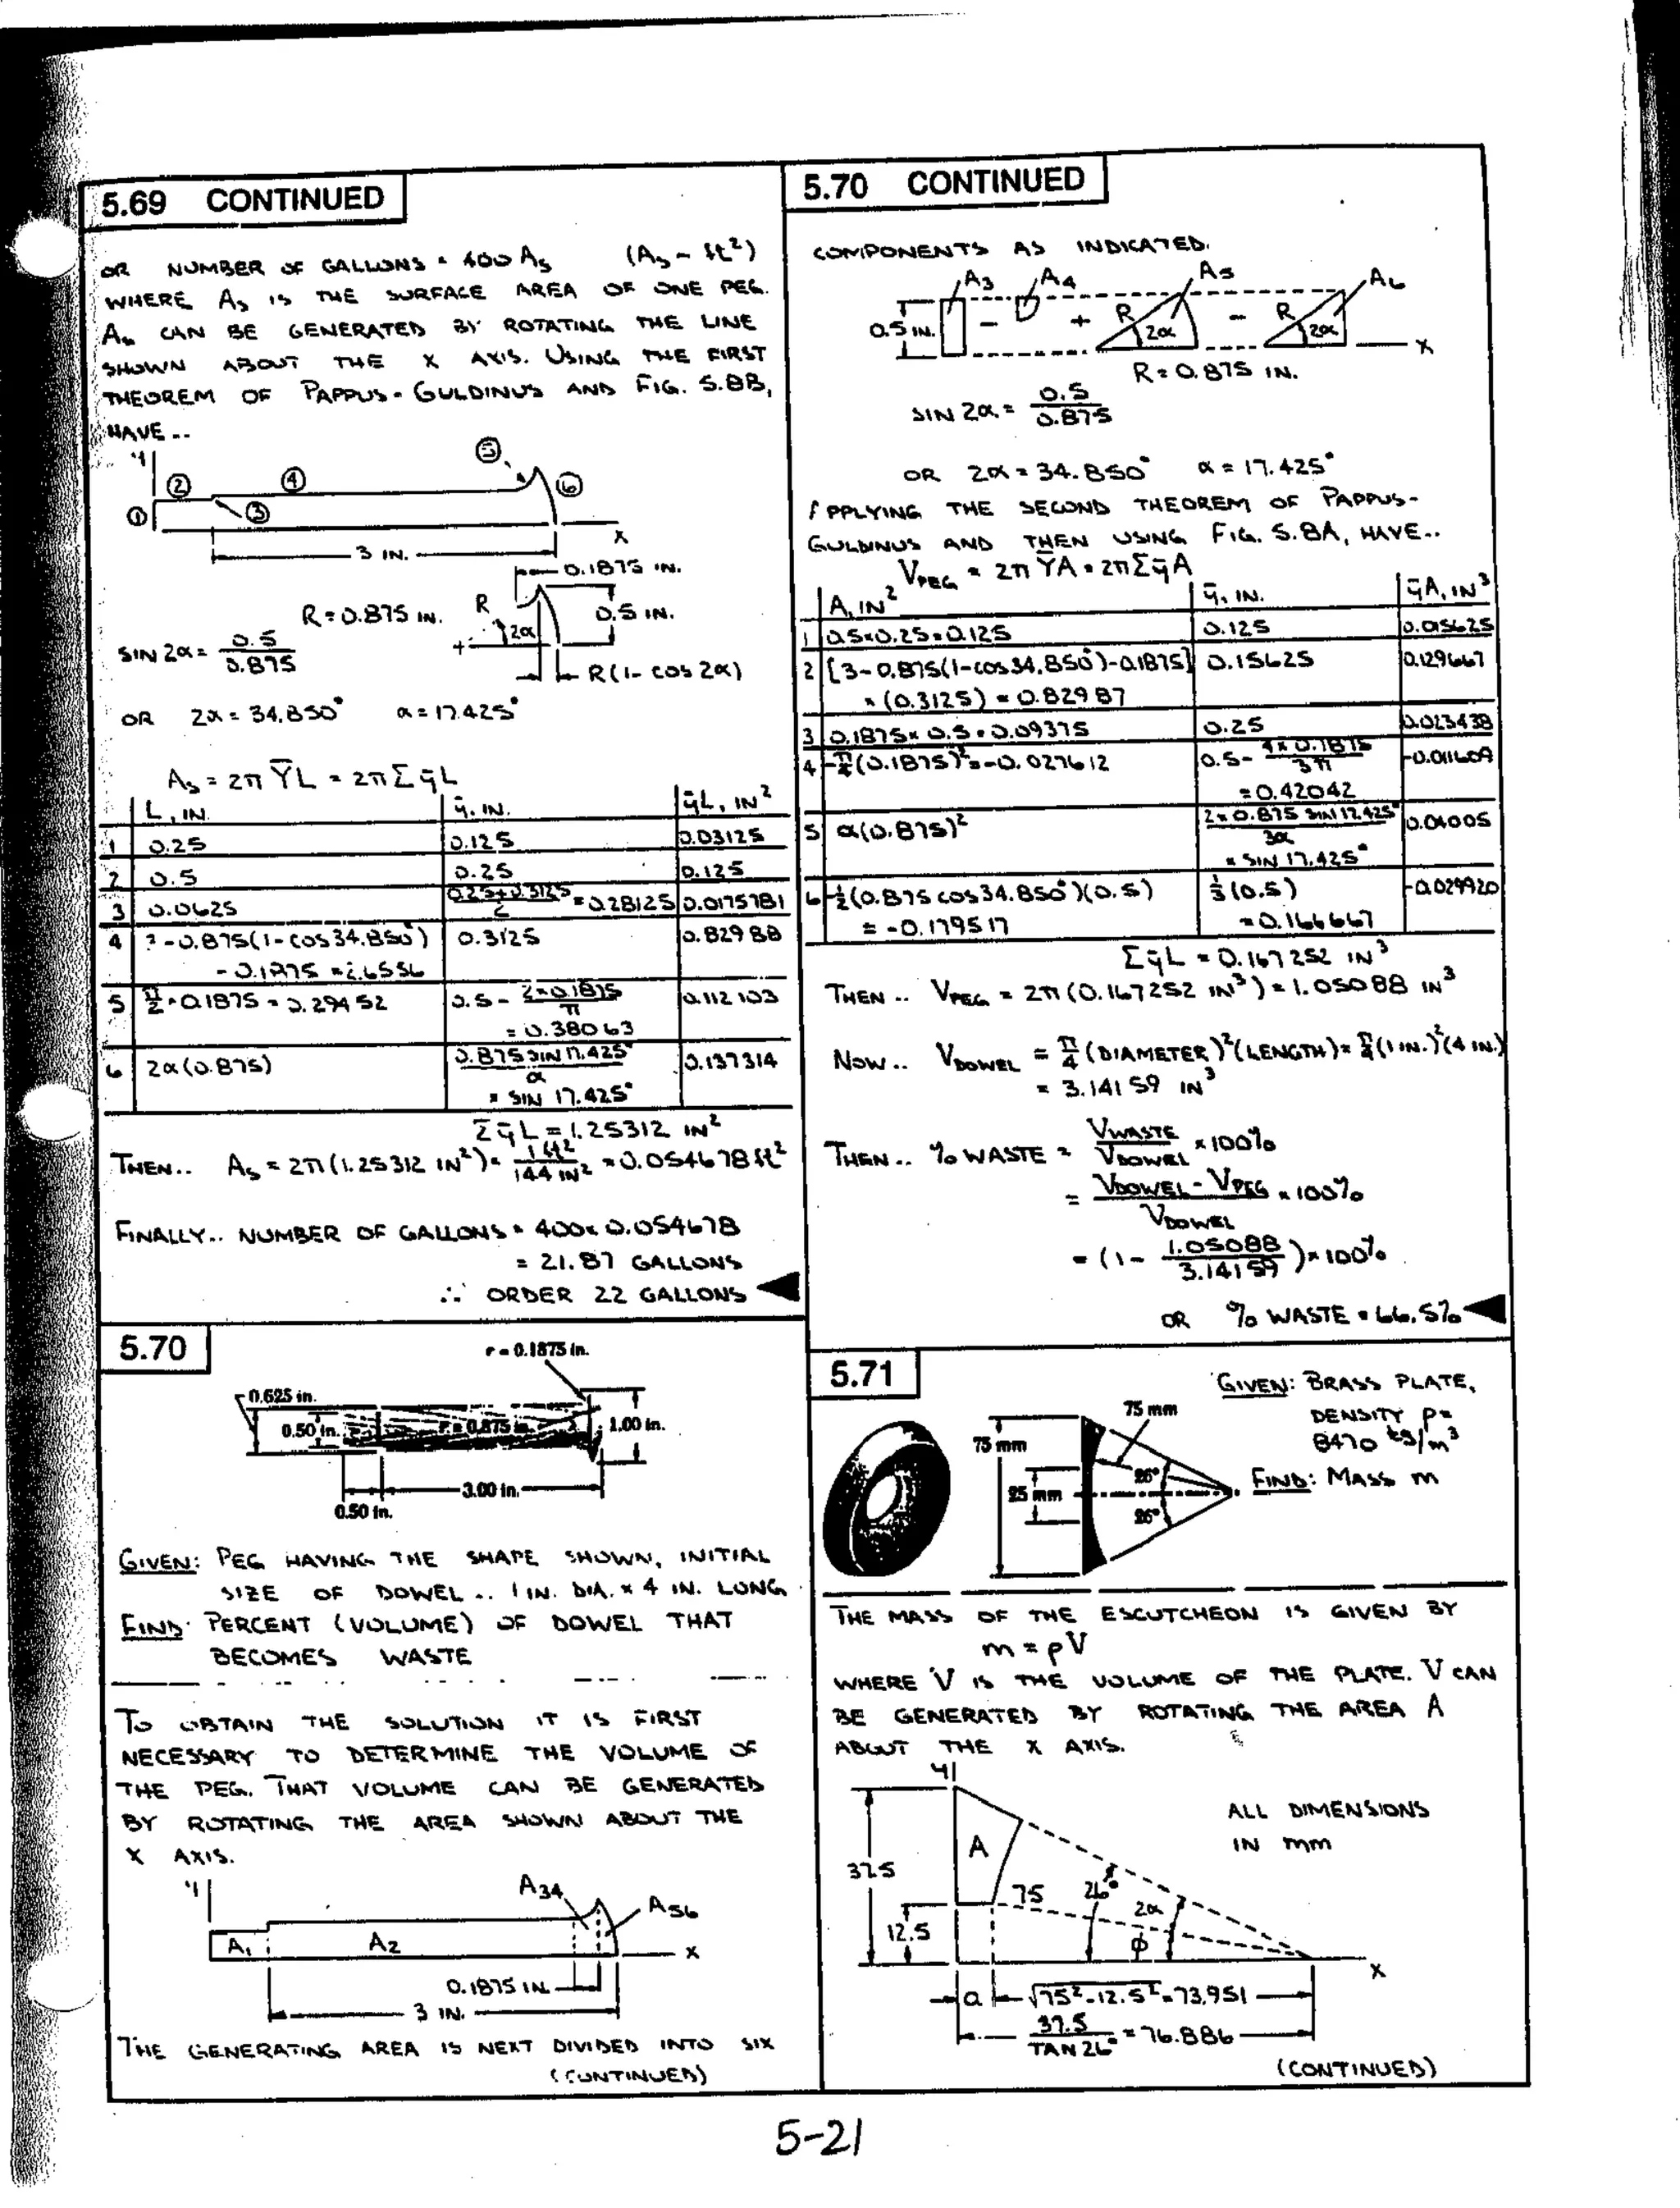 5.69 CONTINUED
OR NUMBER OF GALLONS = 400 As (As ~ ft²)
WHERE As IS THE SURFACE AREA OF ONE PEG.
CAN BE GENERATED BY ROTATING THE LINE
SHOWN ABOUT THE X AXIS. USING THE FIRST
THEOREM OF PAPPUS-GULDINUS AND FIG. 5.8B,
HAVE..
y
① ② ③ ④ ⑤ ⑥
x
3 IN.
0.1875 IN.
R = 0.875 IN. R 2α 0.5 IN.
SIN 2α = 0.5/0.875
R(1- COS 2α)
OR 2α = 34.850° α = 17.425°
As = 2π ȲL = 2π Σ ȳL
L, IN. ȳ, IN. ȳL, IN²
1 0.25 0.125 0.03125
2 0.5 0.25 0.125
3 0.0625 (0.25+0.3125)/2 = 0.28125 0.0175781
4 -0.875(1-COS 34.850°) 0.3125 0.82988
-0.1875 = 2.6556
5 π/2 × 0.1875 = 0.29452 0.5 - 2×0.1875/π 0.112103
= 0.38063
6 2α(0.875) 0.875 SIN 17.425°/α 0.137314
× SIN 17.425°
Σ ȳL = 1.25312 IN²
THEN.. As = 2π(1.25312 IN²) × 1 ft²/144 IN² = 0.054678 ft²
FINALLY.. NUMBER OF GALLONS = 400 × 0.054678
= 21.87 GALLONS
∴ ORDER 22 GALLONS
5.70
r = 0.1875 in.
0.625 in.
0.50 in.
r = 0.875 in.
1.00 in.
3.00 in.
0.50 in.
GIVEN: PEG HAVING THE SHAPE SHOWN, INITIAL
SIZE OF DOWEL .. 1 IN. DIA. × 4 IN. LONG
FIND: PERCENT (VOLUME) OF DOWEL THAT
BECOMES WASTE
TO OBTAIN THE SOLUTION IT IS FIRST
NECESSARY TO DETERMINE THE VOLUME OF
THE PEG. THAT VOLUME CAN BE GENERATED
BY ROTATING THE AREA SHOWN ABOUT THE
X AXIS.
y
A34 A56
A1 A2 x
0.1875 IN.
3 IN.
THE GENERATING AREA IS NEXT DIVIDED INTO SIX
(CONTINUED)
5.70 CONTINUED
COMPONENTS AS INDICATED.
A3 A4 A5 A6
0.5 IN. - + R 2α - R 2α x
R = 0.875 IN.
SIN 2α = 0.5/0.875
OR 2α = 34.850° α = 17.425°
APPLYING THE SECOND THEOREM OF PAPPUS-
GULDINUS AND THEN USING FIG. 5.8A, HAVE..
VPEG = 2π ȲA = 2π Σ ȳA
A, IN² ȳ, IN. ȳA, IN³
1 0.5×0.25 = 0.125 0.125 0.015625
2 [3-0.875(1-COS 34.850°)-0.1875] 0.15625 0.129667
× (0.3125) = 0.82987
3 0.1875 × 0.5 = 0.09375 0.25 0.023438
4 -π/4(0.1875)² = -0.027612 0.5 - 4×0.1875/3π -0.011609
= 0.42042
5 α(0.875)² 2×0.875 SIN 17.425°/3α 0.04005
× SIN 17.425°
6 -½(0.875 COS 34.850°)(0.5) ⅓(0.5) -0.029920
= -0.179517 = 0.166667
Σ ȳL = 0.167252 IN³
THEN .. VPEG = 2π(0.167252 IN³) = 1.05088 IN³
NOW .. VDOWEL = π/4 (DIAMETER)²(LENGTH) = π/4(1 IN.)²(4 IN.)
= 3.14159 IN³
THEN .. % WASTE = VWASTE/VDOWEL × 100%
= (VDOWEL - VPEG)/VDOWEL × 100%
= (1 - 1.05088/3.14159) × 100%
OR % WASTE = 66.5%
5.71
GIVEN: BRASS PLATE,
DENSITY ρ =
8470 kg/m³
FIND: MASS m
75 mm
75 mm
25 mm
26°
26°
THE MASS OF THE ESCUTCHEON IS GIVEN BY
m = ρV
WHERE V IS THE VOLUME OF THE PLATE. V CAN
BE GENERATED BY ROTATING THE AREA A
ABOUT THE X AXIS.
y
ALL DIMENSIONS
IN mm
A
37.5
75 26° 2α
12.5 φ
x
a √75²-12.5² = 73.951
37.5/TAN 26° = 76.886
(CONTINUED)
5-21